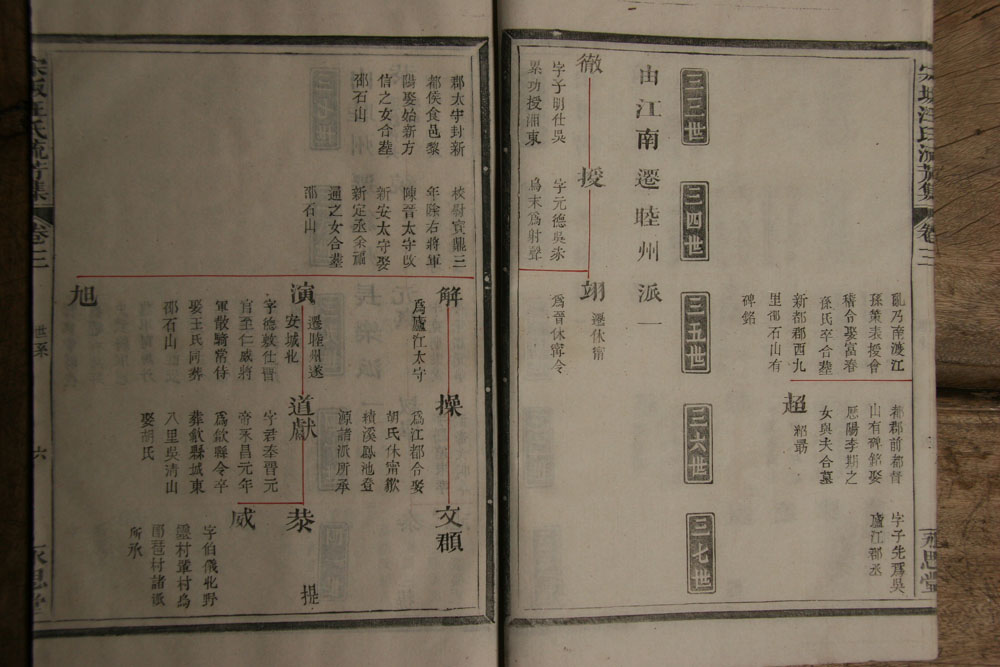 汪氏流芳集
卷三
思堂
亂乃至渡江
孫策表授會
稽合娶富春
孫氏卒合塟
新都郡西九
里邵石山有
碑銘
都郡前都督
山有碑銘娶
歷陽李期之
女與夫合墓
字子先爲吳
廬江郡丞
超
三三世
三四世
三五世
三六世
三七世
由江南遷睦州派一
徹
字子明仕吳
累功授湘東
授
字元德吳
爲末爲射聲
翊
遷休甯
爲晉休甯令
郡太守封新
都侯食邑黎
陽娶始新方
信之女合塟
邵石山
校尉寶鼎三
年除右將軍
陳晉太守改
新安太守娶
新定丞余
通之女合塟
邵石山
解
爲廬江太守
操
爲江都令娶
胡氏休甯歙
績溪鳬池登
源諸派所承
文
演
遷睦州遂
安城北
字德敦仕晉
官至仁威將
軍散騎常侍
娶王氏同葬
邵石山
道獻
字君泰晉元
帝永昌元年
爲歙縣令卒
葬歙縣城東
八里吳清山
娶胡氏
恭
提
威
字伯儀北野
村
琶村諸派
所承
旭
汪氏流芳集
卷三
世系
六
永思堂